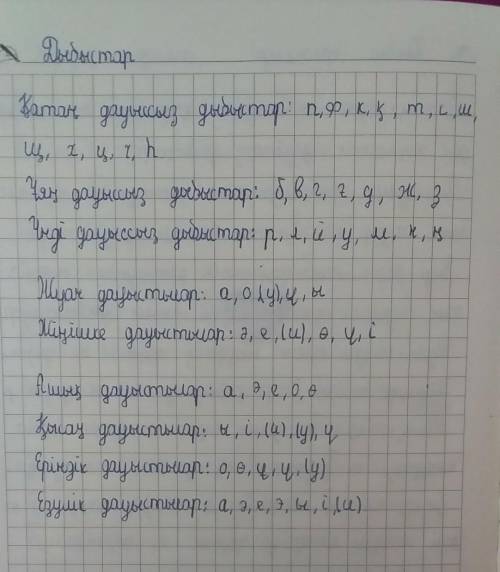 Дыбыстар
Қатаң дауыссыз дыбыстар: п, ф, к, қ, т, с, ш,
щ, х, ц, ч, һ
Ұяң дауыссыз дыбыстар: б, в, г, ғ, д, ж, з
Үнді дауыссыз дыбыстар: р, л, й, у, м, н, ң
Жуан дауыстылар: а, о, (у), ұ, ы
Жіңішке дауыстылар: ә, е, (и), ө, ү, і
Ашық дауыстылар: а, ә, е, о, ө
Қысаң дауыстылар: ы, і, (и), (у), ұ
Еріндік дауыстылар: о, ө, ұ, ү, (у)
Езулік дауыстылар: а, ә, е, э, ы, і, (и)